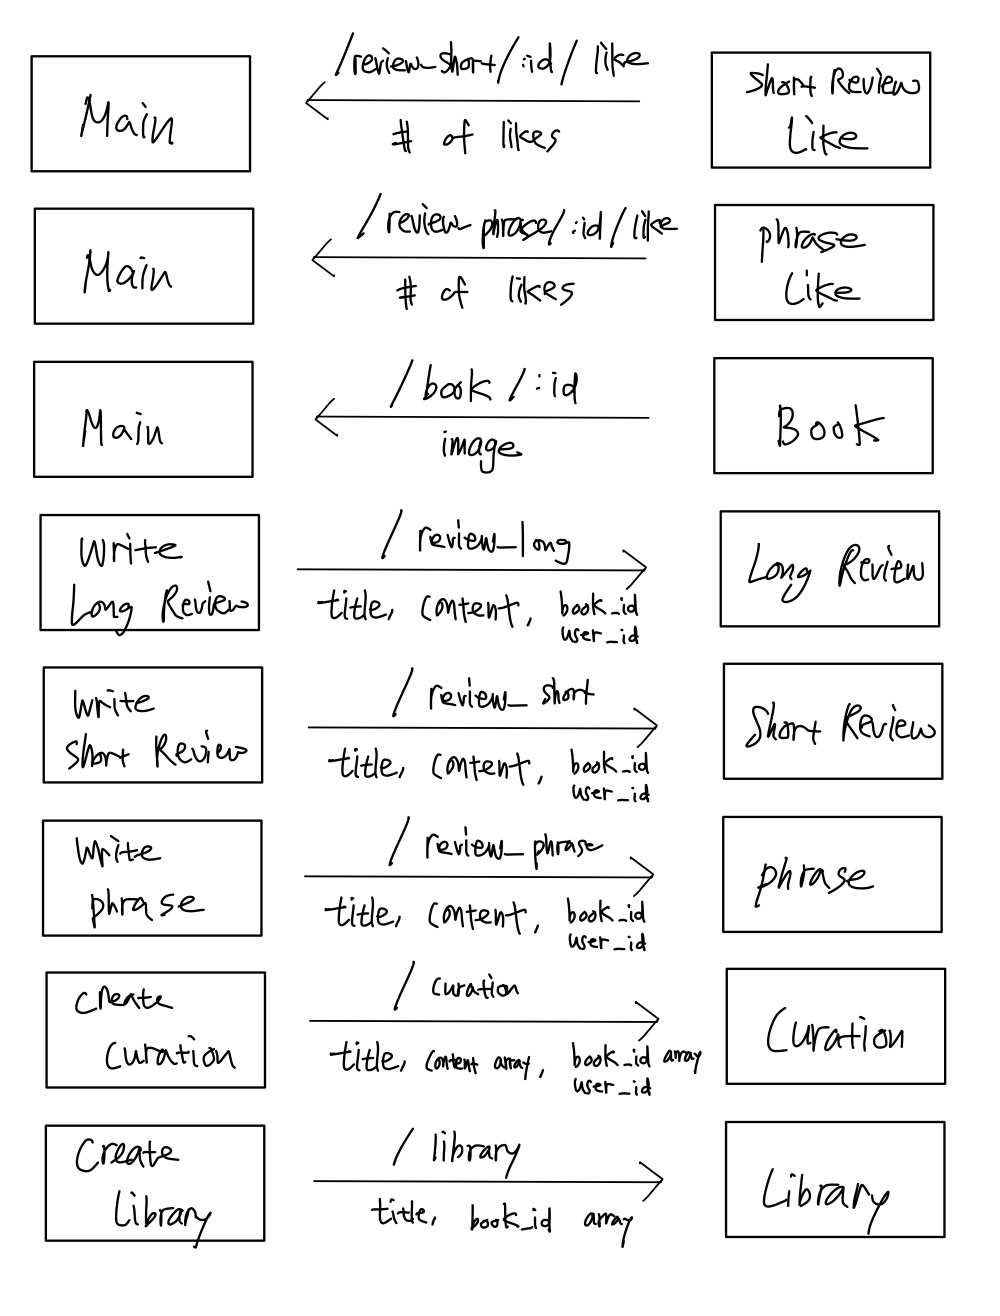 /review_short/:id/ like
Main
# of likes
Short Review
Like
/review_phrase/:id/like
Main
# of likes
phrase
Like
/book /:id
Main
image
Book
Write
Long Review
/ review_long
title, content, book_id
user_id
Long Review
Write
Short Review
/ review_ short
title, content, book_id
user_id
Short Review
Write
phrase
/ review_ phrase
title, content, book_id
user_id
phrase
Create
Curation
/ curation
title, content array, book_id array
user_id
Curation
Create
Library
/ library
title, book_id array
Library